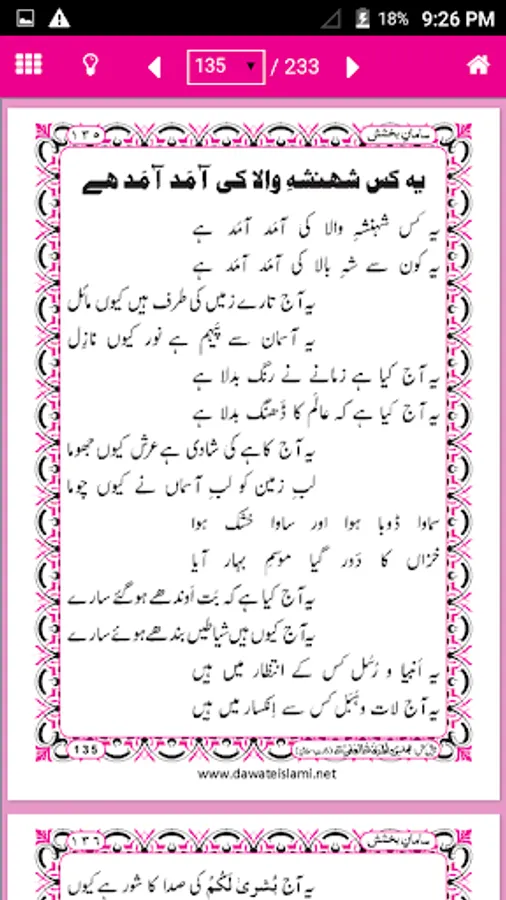 18% 9:26 PM
135 / 233
۱۳۵ سامانِ بخشش
یہ کس شہنشہِ والا کی آمَد آمَد ہے
یہ کس شہنشہِ والا کی آمَد آمَد ہے
یہ کون سے شہِ بالا کی آمَد آمَد ہے
یہ آج تارے زمیں کی طرف ہیں کیوں مائل
یہ آسمان سے پَیہم ہے نور کیوں نازِل
یہ آج کیا ہے زمانے نے رنگ بدلا ہے
یہ آج کیا ہے کہ عالَم کا ڈَھنگ بدلا ہے
یہ آج کاہے کی شادی ہے عرش کیوں جھوما
لبِ زمین کو لبِ آسماں نے کیوں چوما
سماوا ڈوبا ہوا اور ساوا خشک ہوا
خزاں کا دَور گیا موسمِ بہار آیا
یہ آج کیا ہے کہ بُت اَوندھے ہوگئے سارے
یہ آج کیوں ہیں شیاطیں بندھے ہوئے سارے
یہ اَنبیا و رُسُل کس کے انتظار میں ہیں
یہ آج لات و ہُبَل کس سے اِنکسار میں ہیں
135
www.dawateislami.net
۱۳٦ سامانِ بخشش
یہ آج بُشریٰ لَکُمْ کی صدا کا شور ہے کیوں